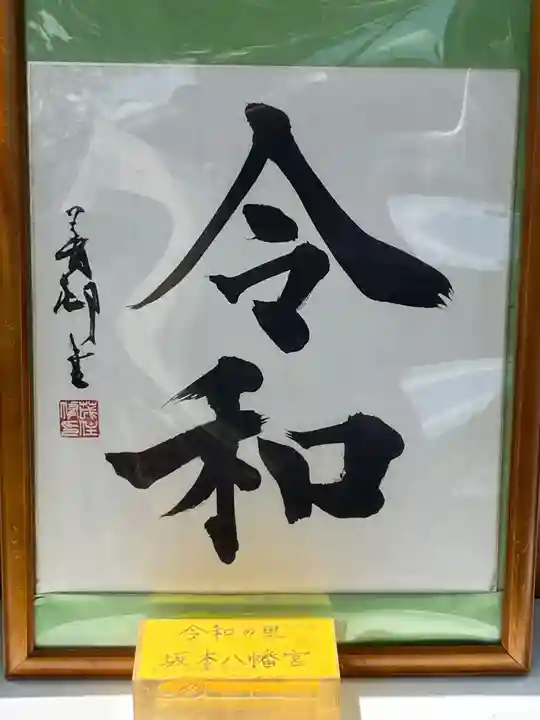 令
和
令和の里
坂本八幡宮